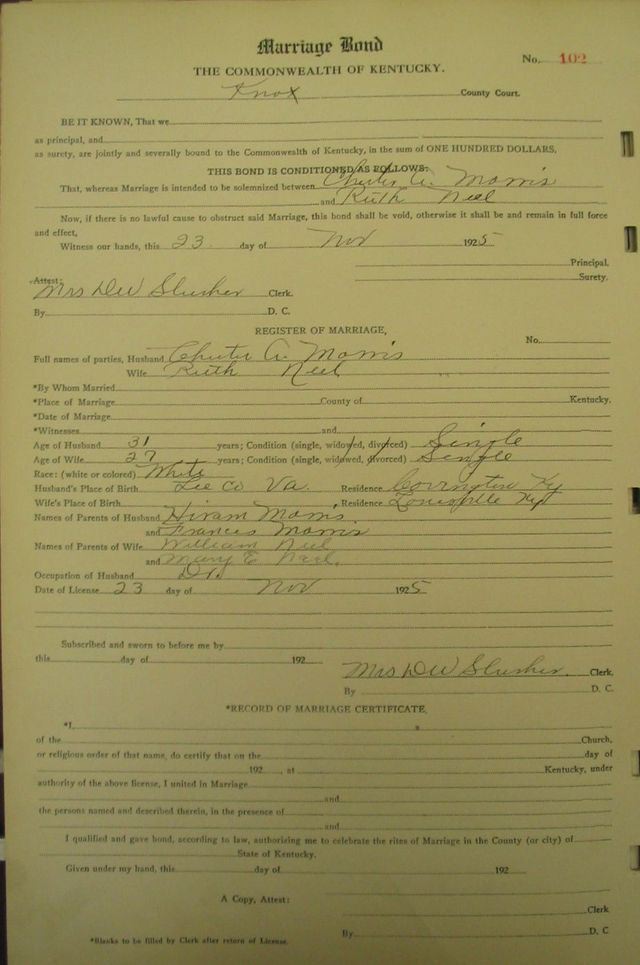 Marriage Bond
No. 102
THE COMMONWEALTH OF KENTUCKY.
Knox County Court.
BE IT KNOWN, That we
as principal, and
as surety, are jointly and severally bound to the Commonwealth of Kentucky, in the sum of ONE HUNDRED DOLLARS,
THIS BOND IS CONDITIONED AS FOLLOWS:
That, whereas Marriage is intended to be solemnized between Chester A. Morris
and Ruth Neel
Now, if there is no lawful cause to obstruct said Marriage, this bond shall be void, otherwise it shall be and remain in full force
and effect,
Witness our hands, this 23 day of Nov 1925
Principal.
Surety.
Attest:
Mrs DW Slusher Clerk.
By D. C.
REGISTER OF MARRIAGE,
No.
Full names of parties, Husband Chester A. Morris
Wife Ruth Neel
*By Whom Married
*Place of Marriage County of Kentucky.
*Date of Marriage
*Witnesses and
Age of Husband 31 years; Condition (single, widowed, divorced) Single
Age of Wife 27 years; Condition (single, widowed, divorced) Single
Race: (white or colored) White
Husband's Place of Birth Lee Co Va. Residence Covington Ky
Wife's Place of Birth Residence Louisville Ky
Names of Parents of Husband Hiram Morris
and Frances Morris
Names of Parents of Wife William Neel
and Mary E Neel.
Occupation of Husband Dr.
Date of License 23 day of Nov 1925
Subscribed and sworn to before me by
this day of 192
Mrs DW Slusher. Clerk.
By D. C.
*RECORD OF MARRIAGE CERTIFICATE,
*I, a
of the Church,
or religious order of that name, do certify that on the day of
192 , at Kentucky, under
authority of the above license, I united in Marriage
and
the persons named and described therein, in the presence of
and
I qualified and gave bond, according to law, authorizing me to celebrate the rites of Marriage in the County (or city) of
State of Kentucky.
Given under my hand, this day of 192
A Copy, Attest:
Clerk
By D. C
*Blanks to be filled by Clerk after return of License.